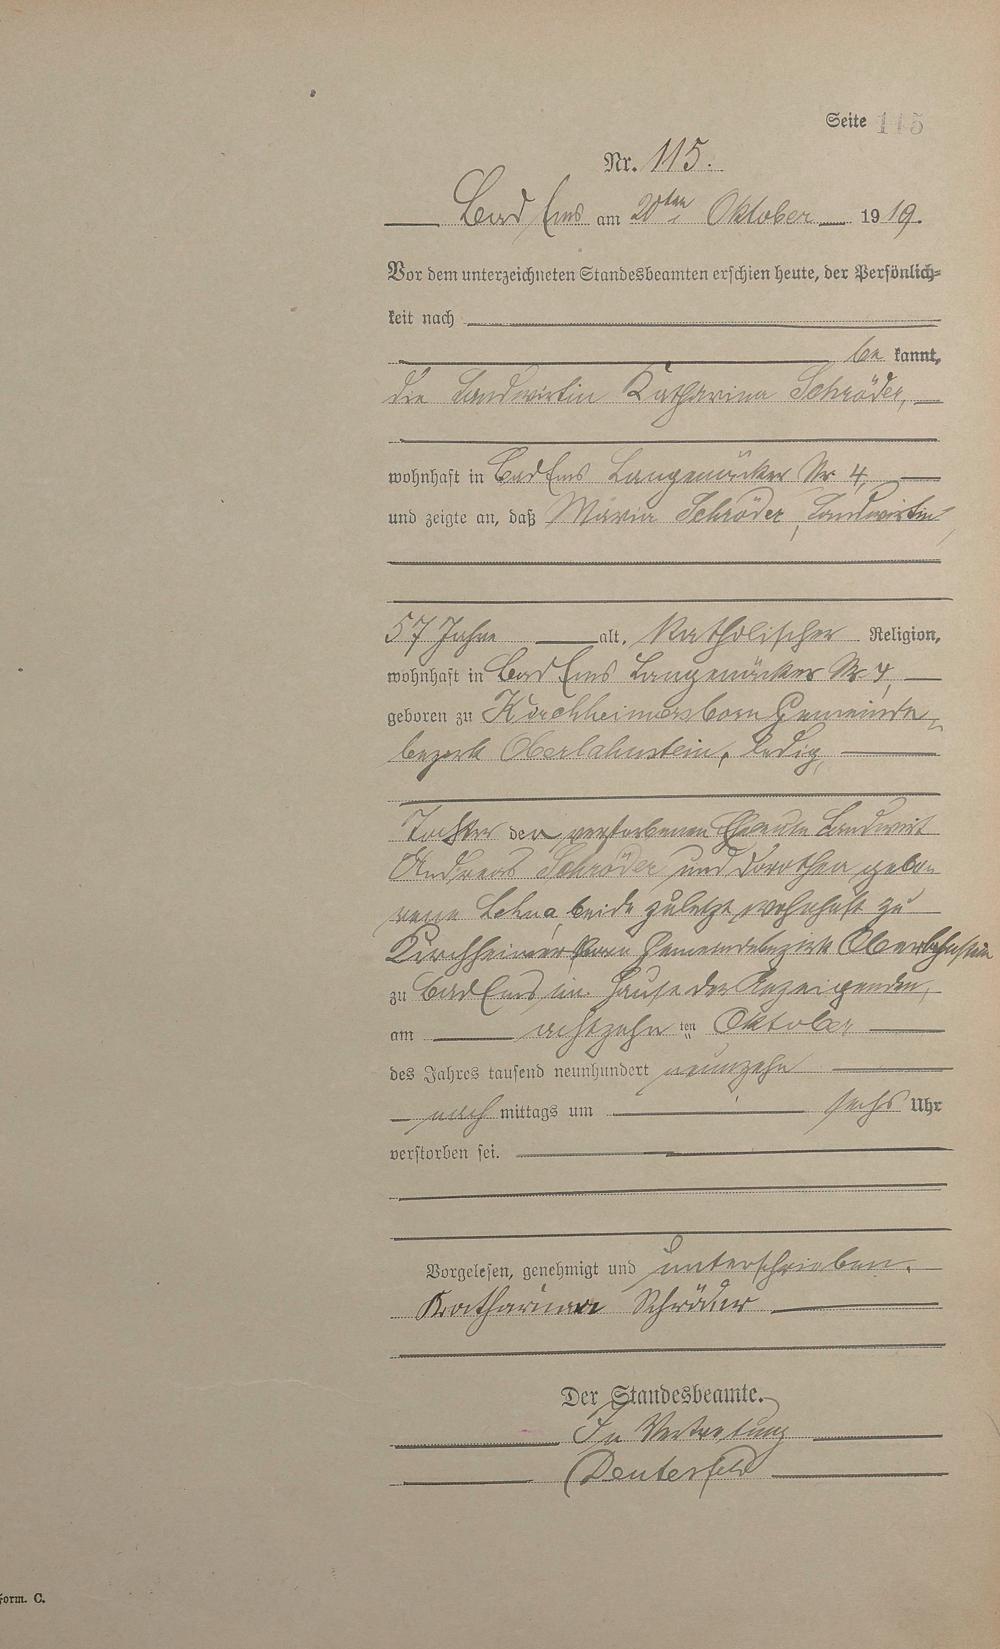 Seite 115
Nr. 115.
Bad Ems am 20ten Oktober 1919.
Vor dem unterzeichneten Standesbeamten erschien heute, der Persönlich-
keit nach
be kannt,
die Landwirtin Katharina Schröder,
wohnhaft in Bad Ems Langenäcker Nr 4,
und zeigte an, daß Maria Schröder, Landwirtin,
57 Jahre alt, katholischer Religion,
wohnhaft in Bad Ems Langenäcker Nr 4,
geboren zu Kirchheimersborn Gemeinde-
bezirk Oberlahnstein, ledig,
Tochter der verstorbenen Eheleute Landwirt
Andreas Schröder und Dorothea gebo-
rene beide zuletzt wohnhaft zu
Kirchheimersborn Gemeindebezirk Oberlahnstein
zu Bad Ems im Hause der Anzeigenden,
am achtzehn ten Oktober
des Jahres tausend neunhundert neunzehn
nach mittags um sechs Uhr
verstorben sei.
Vorgelesen, genehmigt und unterschrieben.
Katharina Schröder
Der Standesbeamte.
In Vertretung
Form. C.